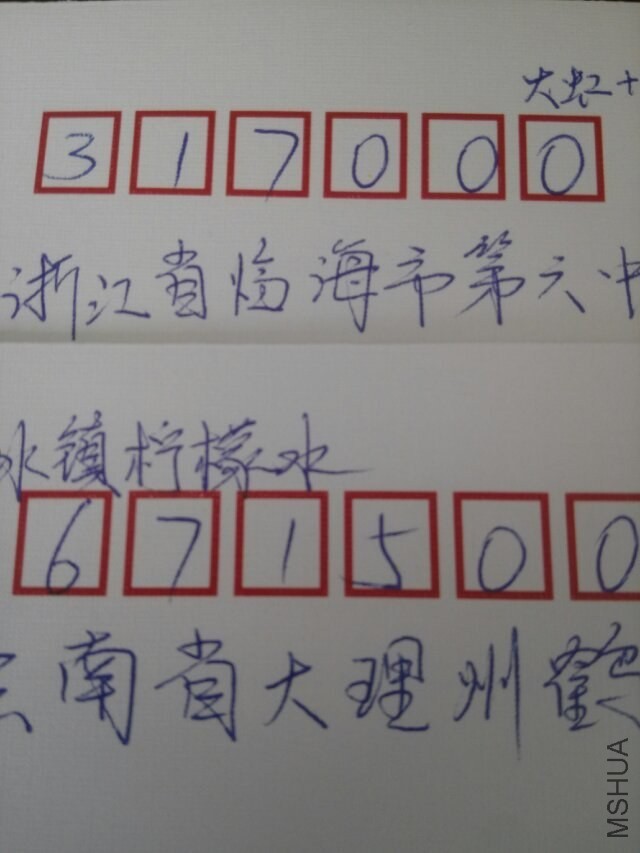 大虹+
317000
浙江省临海市第六中
冰镇柠檬水
671500
云南省大理州鹤
MSHUA